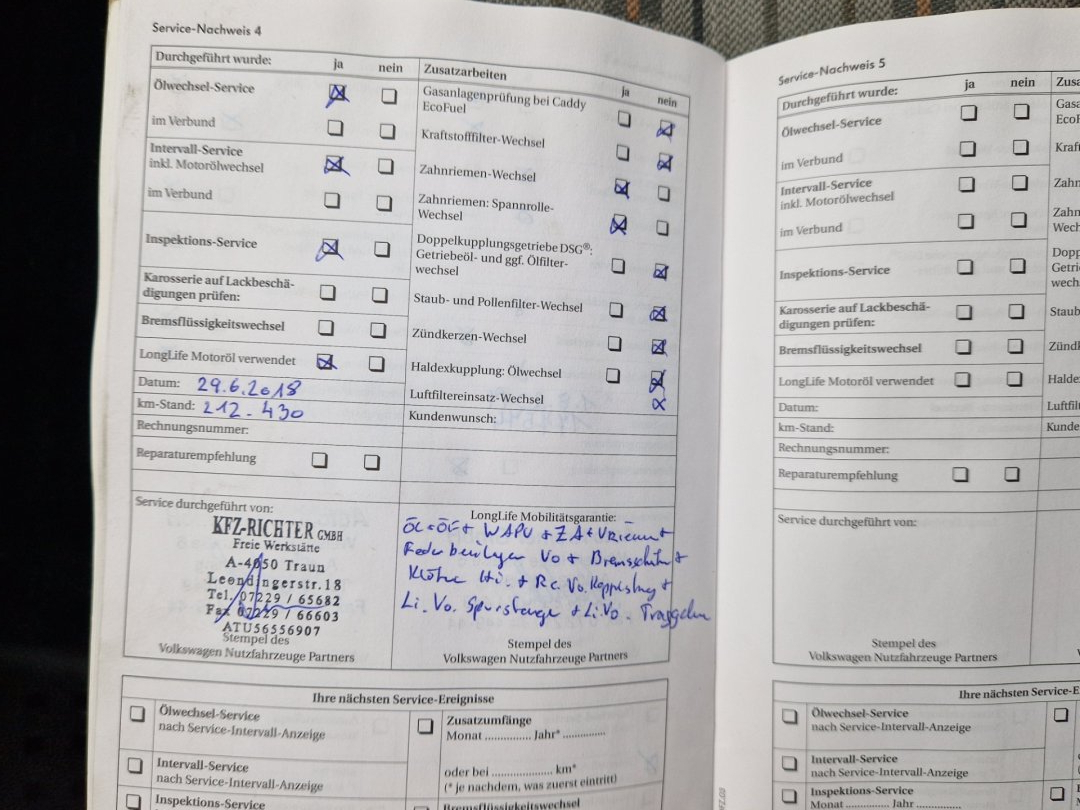 Service-Nachweis 4
Durchgeführt wurde: ja nein
Ölwechsel-Service
im Verbund
Intervall-Service
inkl. Motorölwechsel
im Verbund
Inspektions-Service
Karosserie auf Lackbeschä-
digungen prüfen:
Bremsflüssigkeitswechsel
LongLife Motoröl verwendet
Datum: 29.6.2018
km-Stand: 212.430
Rechnungsnummer:
Reparaturempfehlung
Zusatzarbeiten ja nein
Gasanlagenprüfung bei Caddy
EcoFuel
Kraftstofffilter-Wechsel
Zahnriemen-Wechsel
Zahnriemen: Spannrolle-
Wechsel
Doppelkupplungsgetriebe DSG®:
Getriebeöl- und ggf. Ölfilter-
wechsel
Staub- und Pollenfilter-Wechsel
Zündkerzen-Wechsel
Haldexkupplung: Ölwechsel
Luftfiltereinsatz-Wechsel
Kundenwunsch:
Service durchgeführt von:
KFZ-RICHTER GMBH
Freie Werkstätte
A-4050 Traun
Leondingerstr.18
Tel. 07229 / 65682
Fax 07229 / 66603
ATU56556907
Stempel des
Volkswagen Nutzfahrzeuge Partners
LongLife Mobilitätsgarantie:
ÖL + ÖF + WAPU + ZA +
Vo +
Hi. + Re. Vo. +
Li. Vo. Spurstange + Li. Vo.
Stempel des
Volkswagen Nutzfahrzeuge Partners
Ihre nächsten Service-Ereignisse
Ölwechsel-Service
nach Service-Intervall-Anzeige
Intervall-Service
nach Service-Intervall-Anzeige
Inspektions-Service
Zusatzumfänge
Monat ............. Jahr* ............
oder bei .................. km*
(* je nachdem, was zuerst eintritt)
Bremsflüssigkeitswechsel
Service-Nachweis 5
Durchgeführt wurde: ja nein
Ölwechsel-Service
im Verbund
Intervall-Service
inkl. Motorölwechsel
im Verbund
Inspektions-Service
Karosserie auf Lackbeschä-
digungen prüfen:
Bremsflüssigkeitswechsel
LongLife Motoröl verwendet
Datum:
km-Stand:
Rechnungsnummer:
Reparaturempfehlung
Zusa
Gasa
EcoF
Kraft
Zahn
Zahn
Wech
Dopp
Getri
wech
Staub
Zünd
Halde
Luftfil
Kunde
Service durchgeführt von:
Stempel des
Volkswagen Nutzfahrzeuge Partners
Ihre nächsten Service-E
Ölwechsel-Service
nach Service-Intervall-Anzeige
Intervall-Service
nach Service-Intervall-Anzeige
Inspektions-Service
Monat ............. Jahr .............